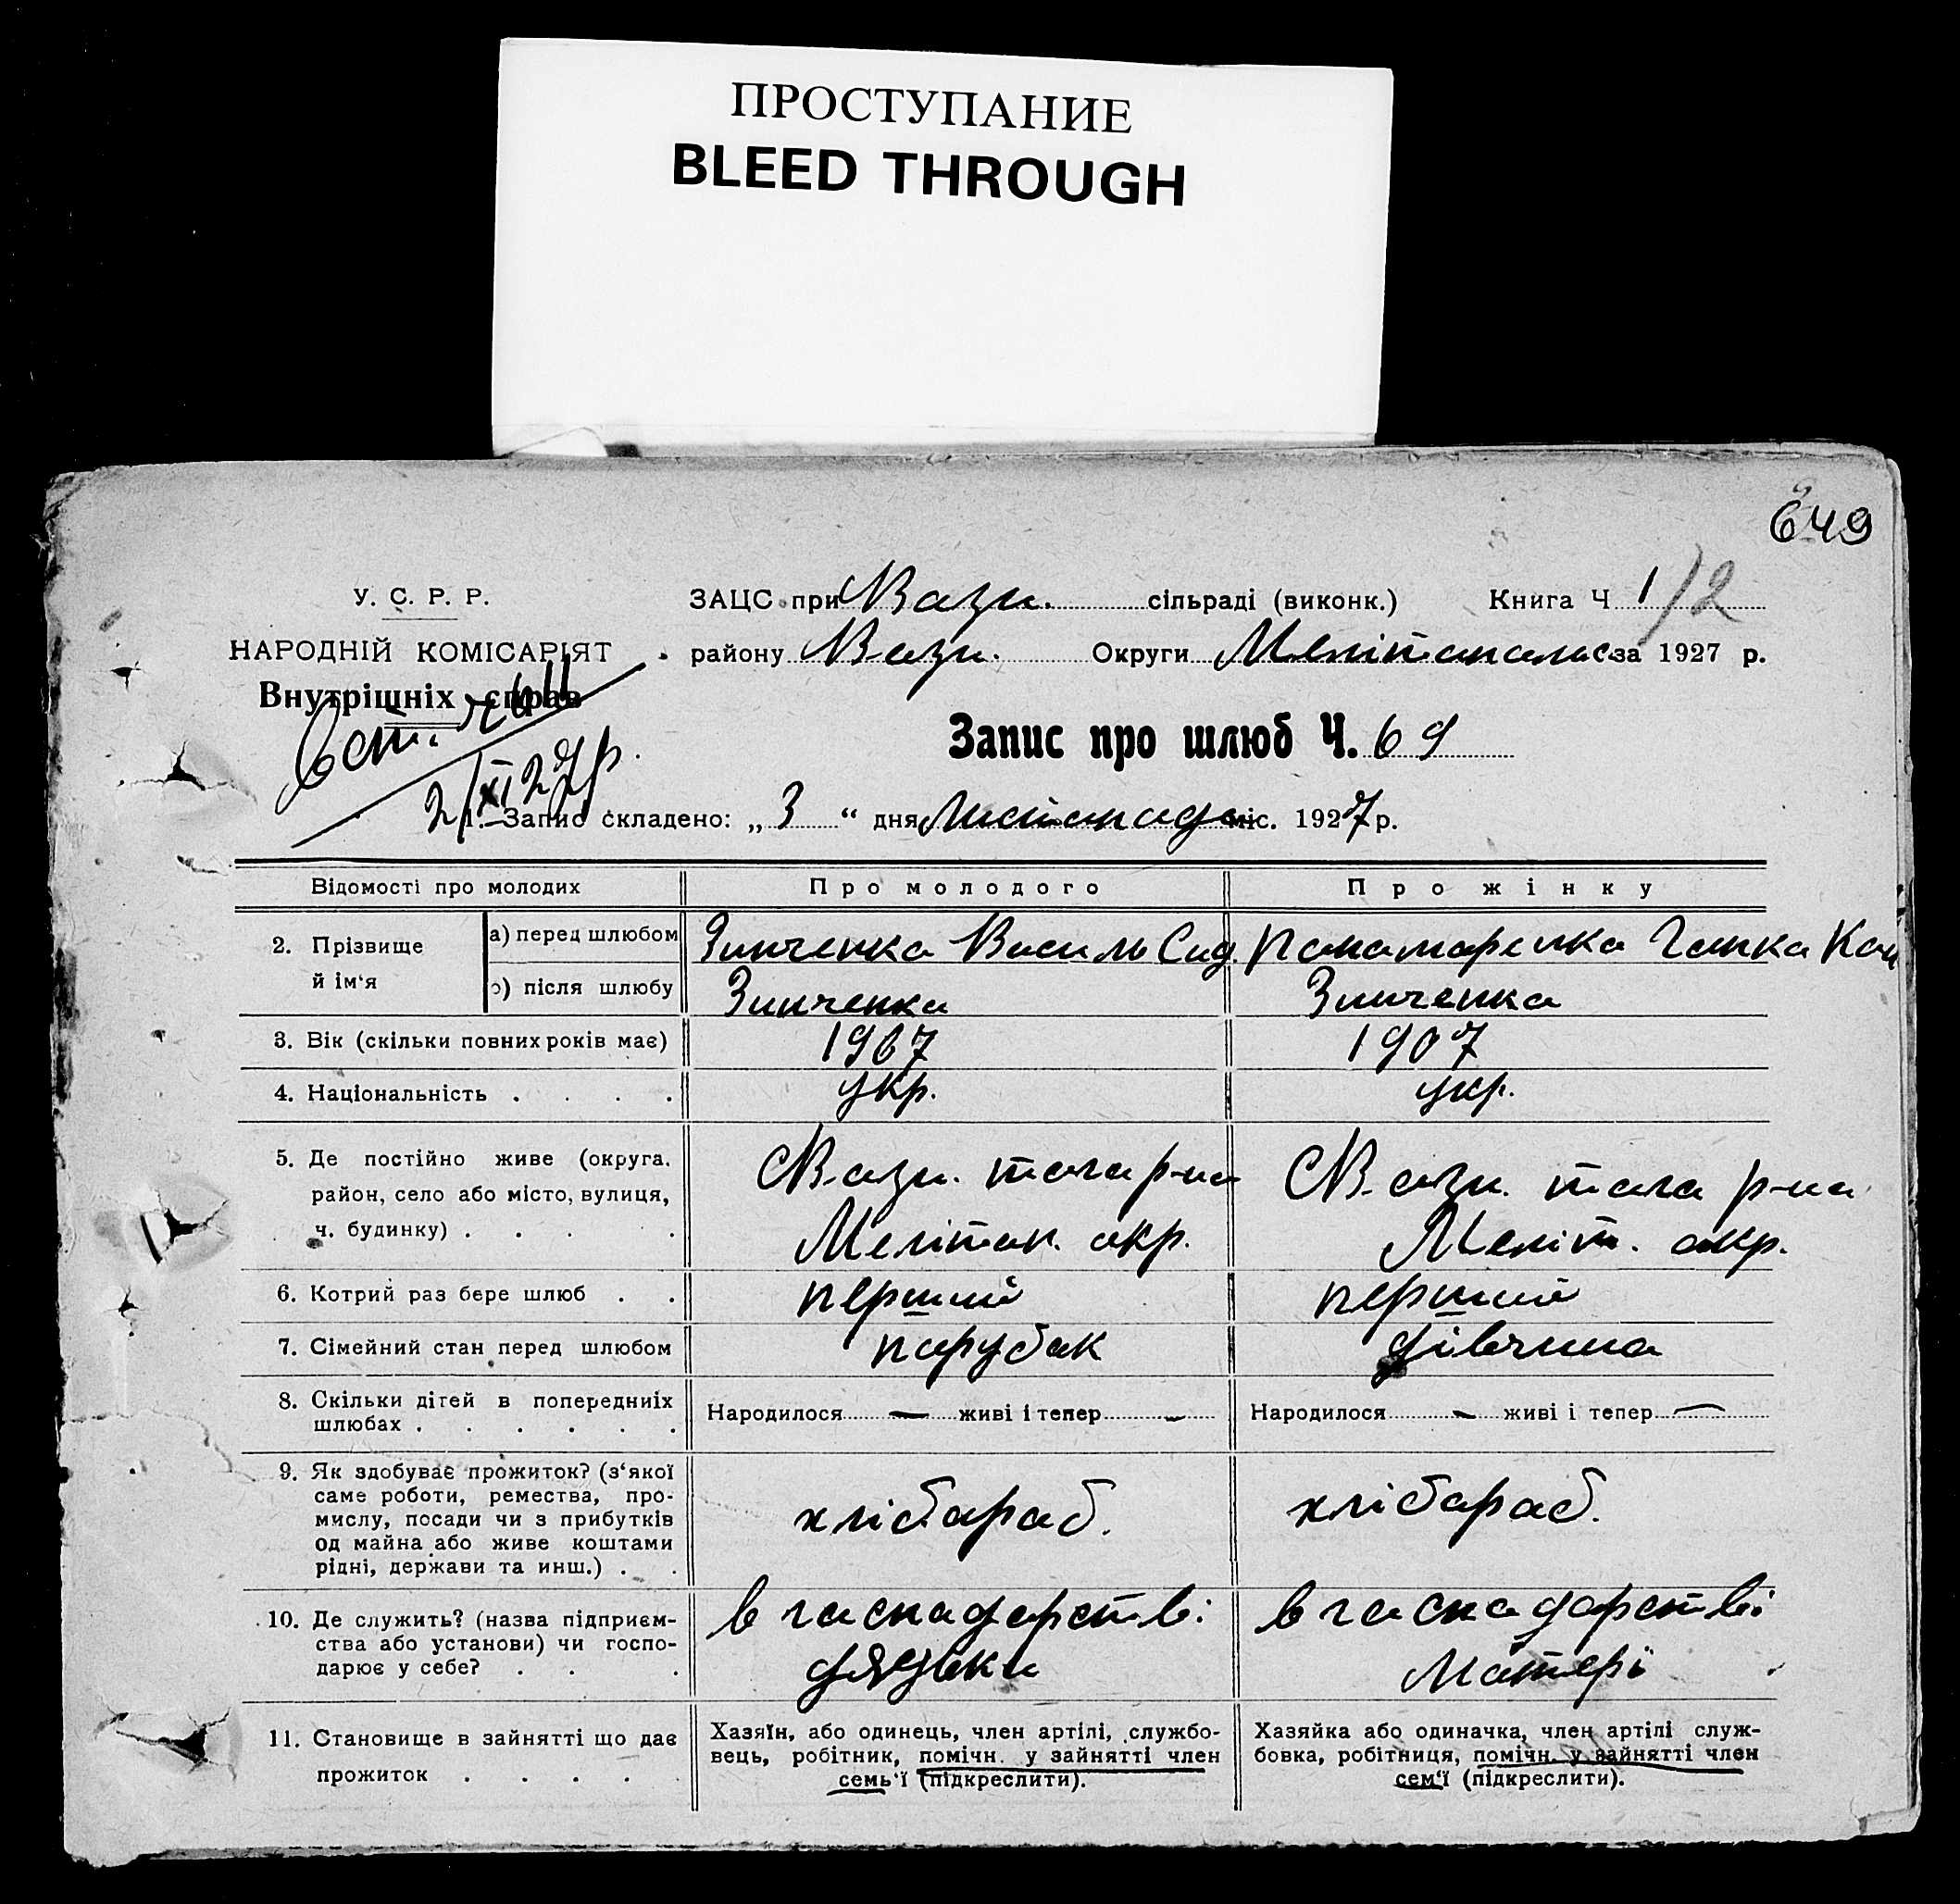 ПРОСТУПАНИЕ
BLEED THROUGH
649
У. С. Р. Р.
НАРОДНІЙ КОМІСАРІЯТ
Внутрішніх справ
ЗАЦС при В. Вази. сільраді (виконк.) Книга Ч 1/2
району В. Вази. Округи Мелітапальс за 1927 р.
2/XI 27 р.
Запис про шлюб Ч. 69
1. Запис складено: „ 3 “ дня листапада міс. 1927 р.
Відомості про молодих Про молодого Про жінку
2. Прізвище й ім‘я
а) перед шлюбом Зинченка Василь Сид. Панамаренка Ганка
після шлюбу Зинченка Зинченка
3. Вік (скільки повних років має) 1907 1907
4. Національність укр. укр.
5. Де постійно живе (округа, район, село або місто, вулиця, ч. будинку)
тага р-на
Мелітап. акр.
тага р-на
Меліт. акр.
6. Котрий раз бере шлюб перший перший
7. Сімейний стан перед шлюбом парубак дівчина
8. Скільки дітей в попередниіх шлюбах
Народилося — живі і тепер —
Народилося — живі і тепер —
9. Як здобуває прожиток? (з‘якої
саме роботи, ремества, про-
мислу, посади чи з прибутків
од майна або живе коштами
рідні, держави та инш.)
хлібараб. хлібараб.
10. Де служить? (назва підприєм-
ства або установи) чи госпо-
дарює у себе?
в гаспадарстві
дядьки
в гаспадарстві
Матері
11. Становище в зайнятті що дає
прожиток
Хазяїн, або одинець, член артілі, службо-
вець, робітник, помічн. у зайнятті член
семь‘ї (підкреслити).
Хазяйка або одиначка, член артілі служ-
бовка, робітниця, помічн. у зайнятті член
сем‘ї (підкреслити).